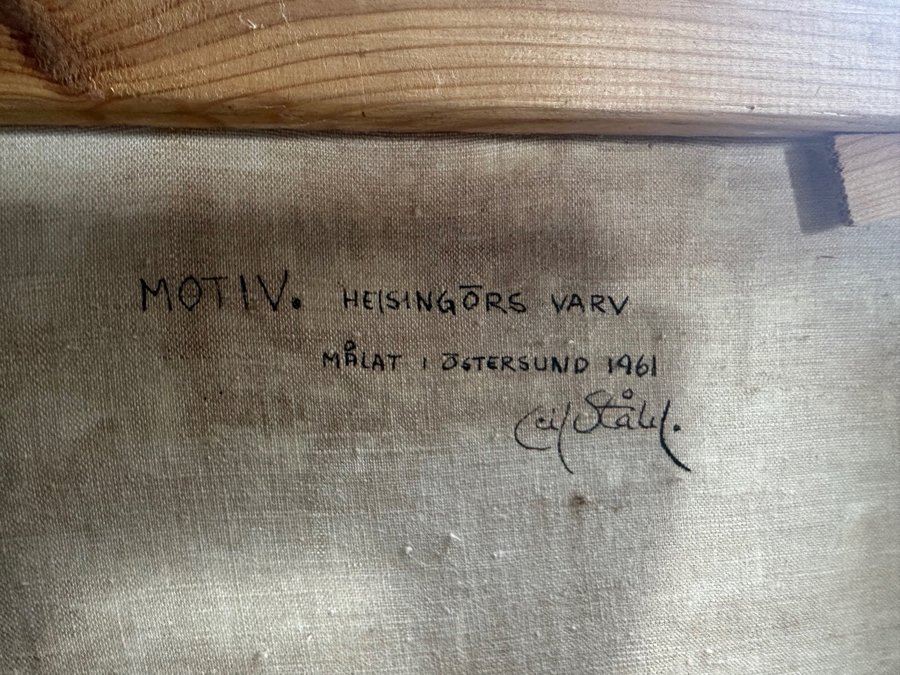 MOTIV. HELSINGÖRS VARV
MÅLAT I ÖSTERSUND 1961
Ceil Ståhl.